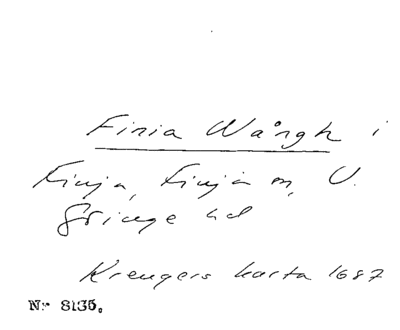 Finia Wångh i
Finja, Finja sn, V.
Göinge hd
Kreugers karta 1687
Nr 8135.